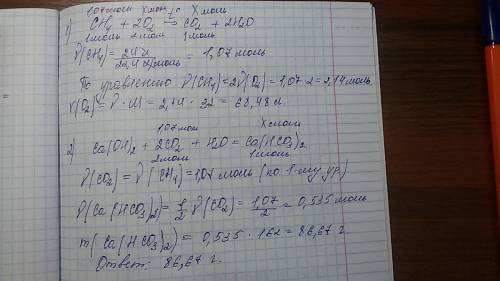 1,07 моль X моль t° X моль
1) CH₄ + 2O₂ → CO₂ + 2H₂O
1 моль 2 моль 1 моль
ν(CH₄) = 24 л / 22,4 л/моль = 1,07 моль
По уравнению ν(CH₄) = 2ν(O₂) = 1,07·2 = 2,14 моль
V(O₂) = ν · M = 2,14 · 32 = 68,48 л.
1,07 моль X моль
2) Ca(OH)₂ + 2CO₂ + H₂O = Ca(HCO₃)₂
2 моль 1 моль
ν(CO₂) = ν(CH₄) = 1,07 моль (по 1-му ур)
ν(Ca(HCO₃)₂) = 1/2 ν(CO₂) = 1,07/2 = 0,535 моль
m(Ca(HCO₃)₂) = 0,535 · 162 = 86,67 г.
Ответ: 86,67 г.